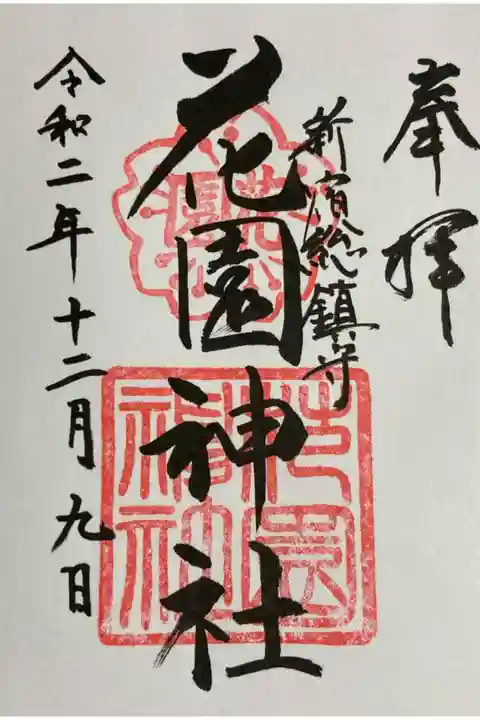 奉拝
新宿総鎮守
花園神社
令和二年十二月九日
花園
神社